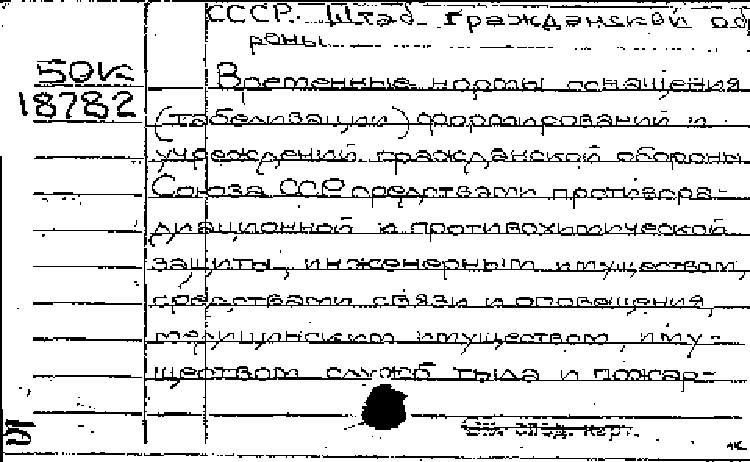 СССР. Штаб гражданской обо
роны
50к
18782
Временные нормы оснащения
(табелизации) формирований и
учреждений гражданской обороны
Союза ССР средствами противора-
диационной и противохимической
защиты, инженерным имуществом,
средствами связи и оповещения,
медицинским имуществом, иму-
ществом служб тыла и пожар-
См. след. карт.